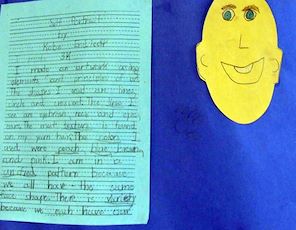 Self Portrait
by:
I made an artwork using
elements and principles of art.
The shapes I used are lines,
circle and crescent. The lines I
see are eyebrow nose and eyes
ears. The texture is found
on my yarn hair. The color I
used were peach, blue, brown,
and pink. I am in a
unified pattern because
we all have the same
face shape. There is variety
because we each have our